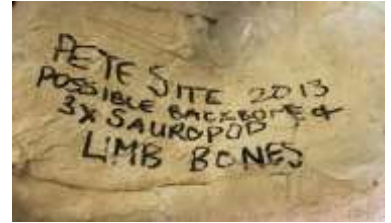 PETE SITE 2013
POSSIBLE BACKBONE &
3X SAUROPOD
LIMB BONES